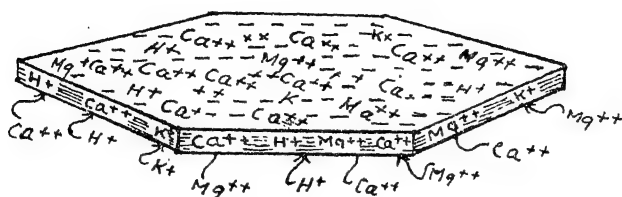 Ca++ Ca++ K+
H+ Ca++ Mg++
Mg++
Mg+ Ca++ Ca++ Ca++ Ca++ Ca
H+ H+
K
Ca+ Ca++
H+ Ca++ K+ Ca++ H+ Mg++ Ca++ Mg++ K+
Ca++ H+ K+ Mg++ H+ Ca++ Mg++ Ca++ Mg++